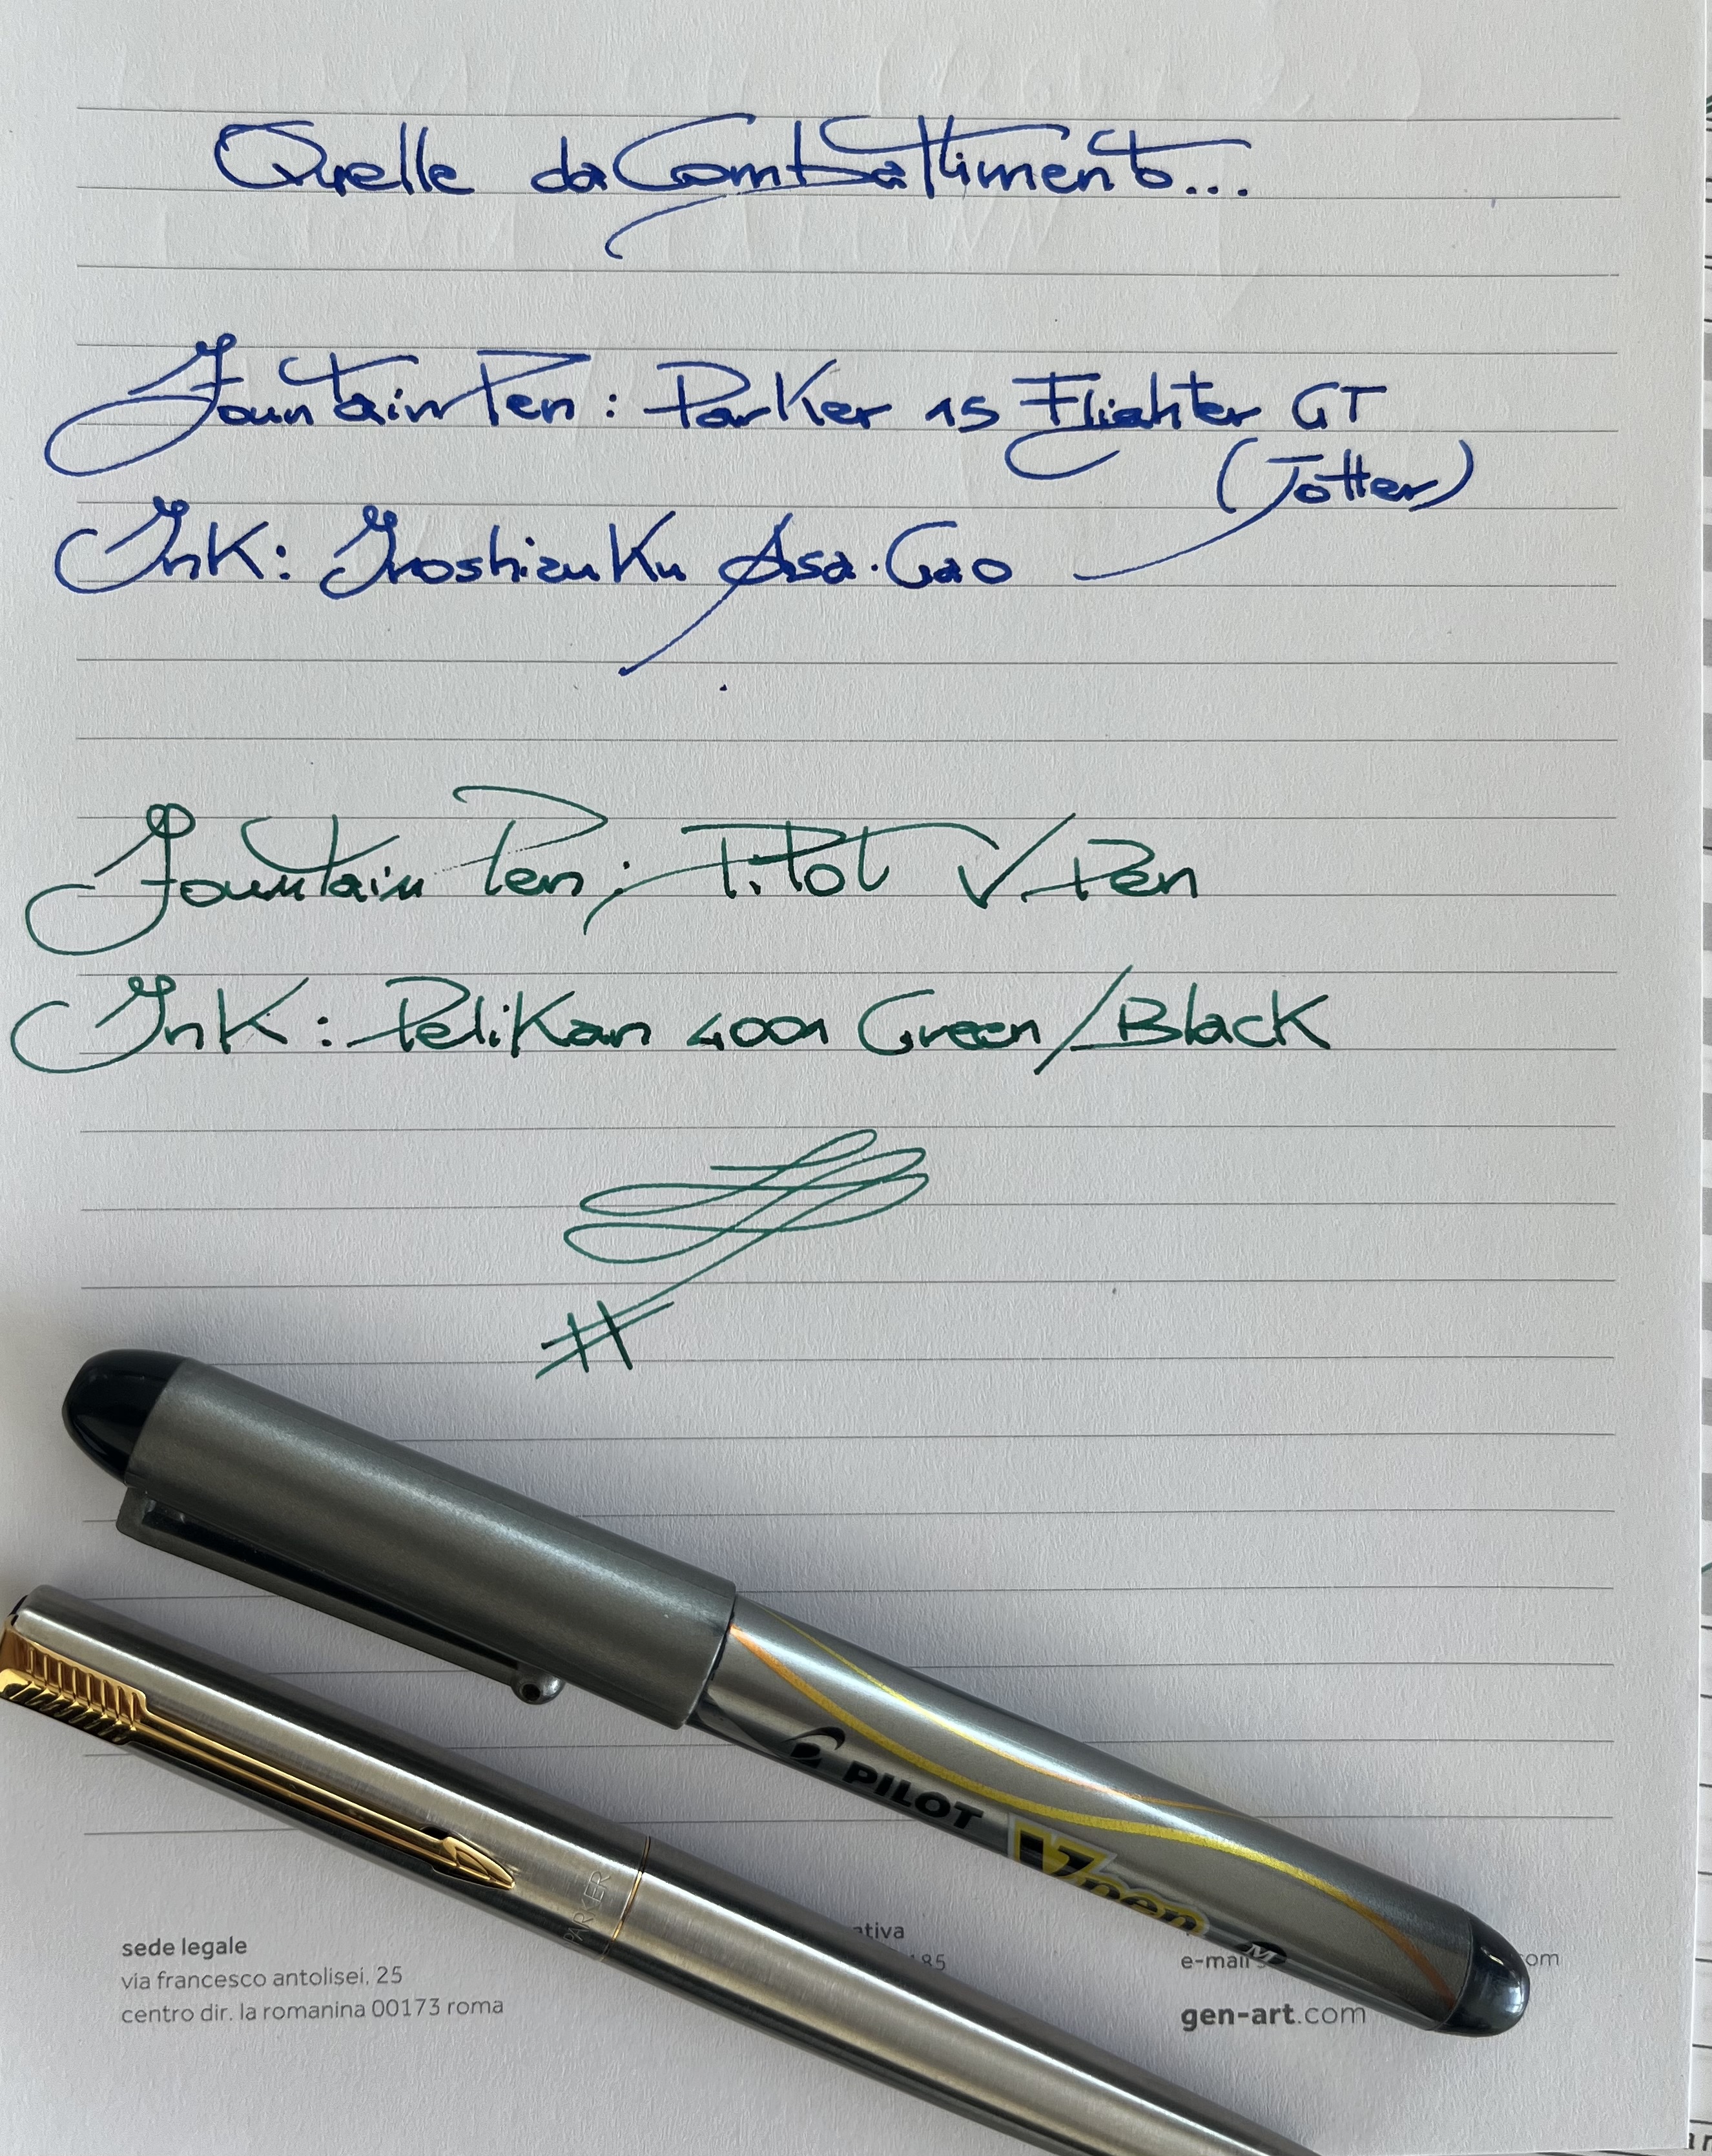 Quelle da Combattimento...
Fountain Pen: Parker 15 Flighter GT
(Jotter)
Ink: Iroshizuku Asa.Gao
Fountain Pen: Pilot V.Pen
Ink: Pelikan 4001 Green/Black
PILOT Vpen M
PARKER
sede legale
via francesco antolisei, 25
centro dir. la romanina 00173 roma
e-mail
gen-art.com